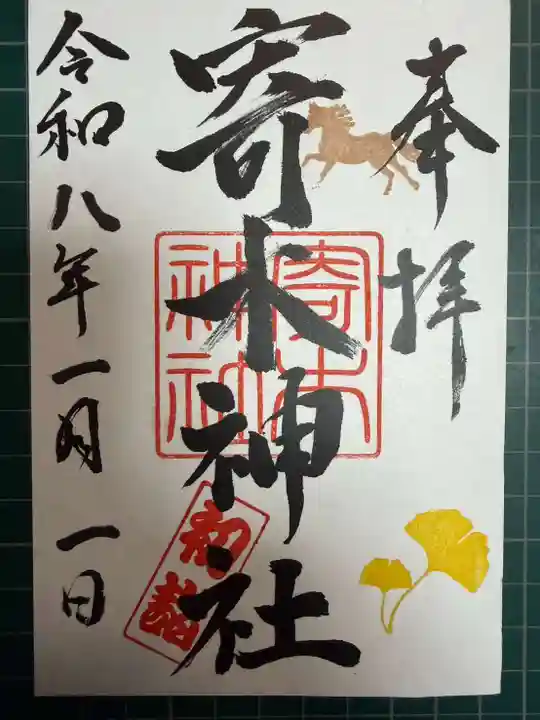 奉拝
寄木神社
寄木
神社
初詣
令和八年一月一日